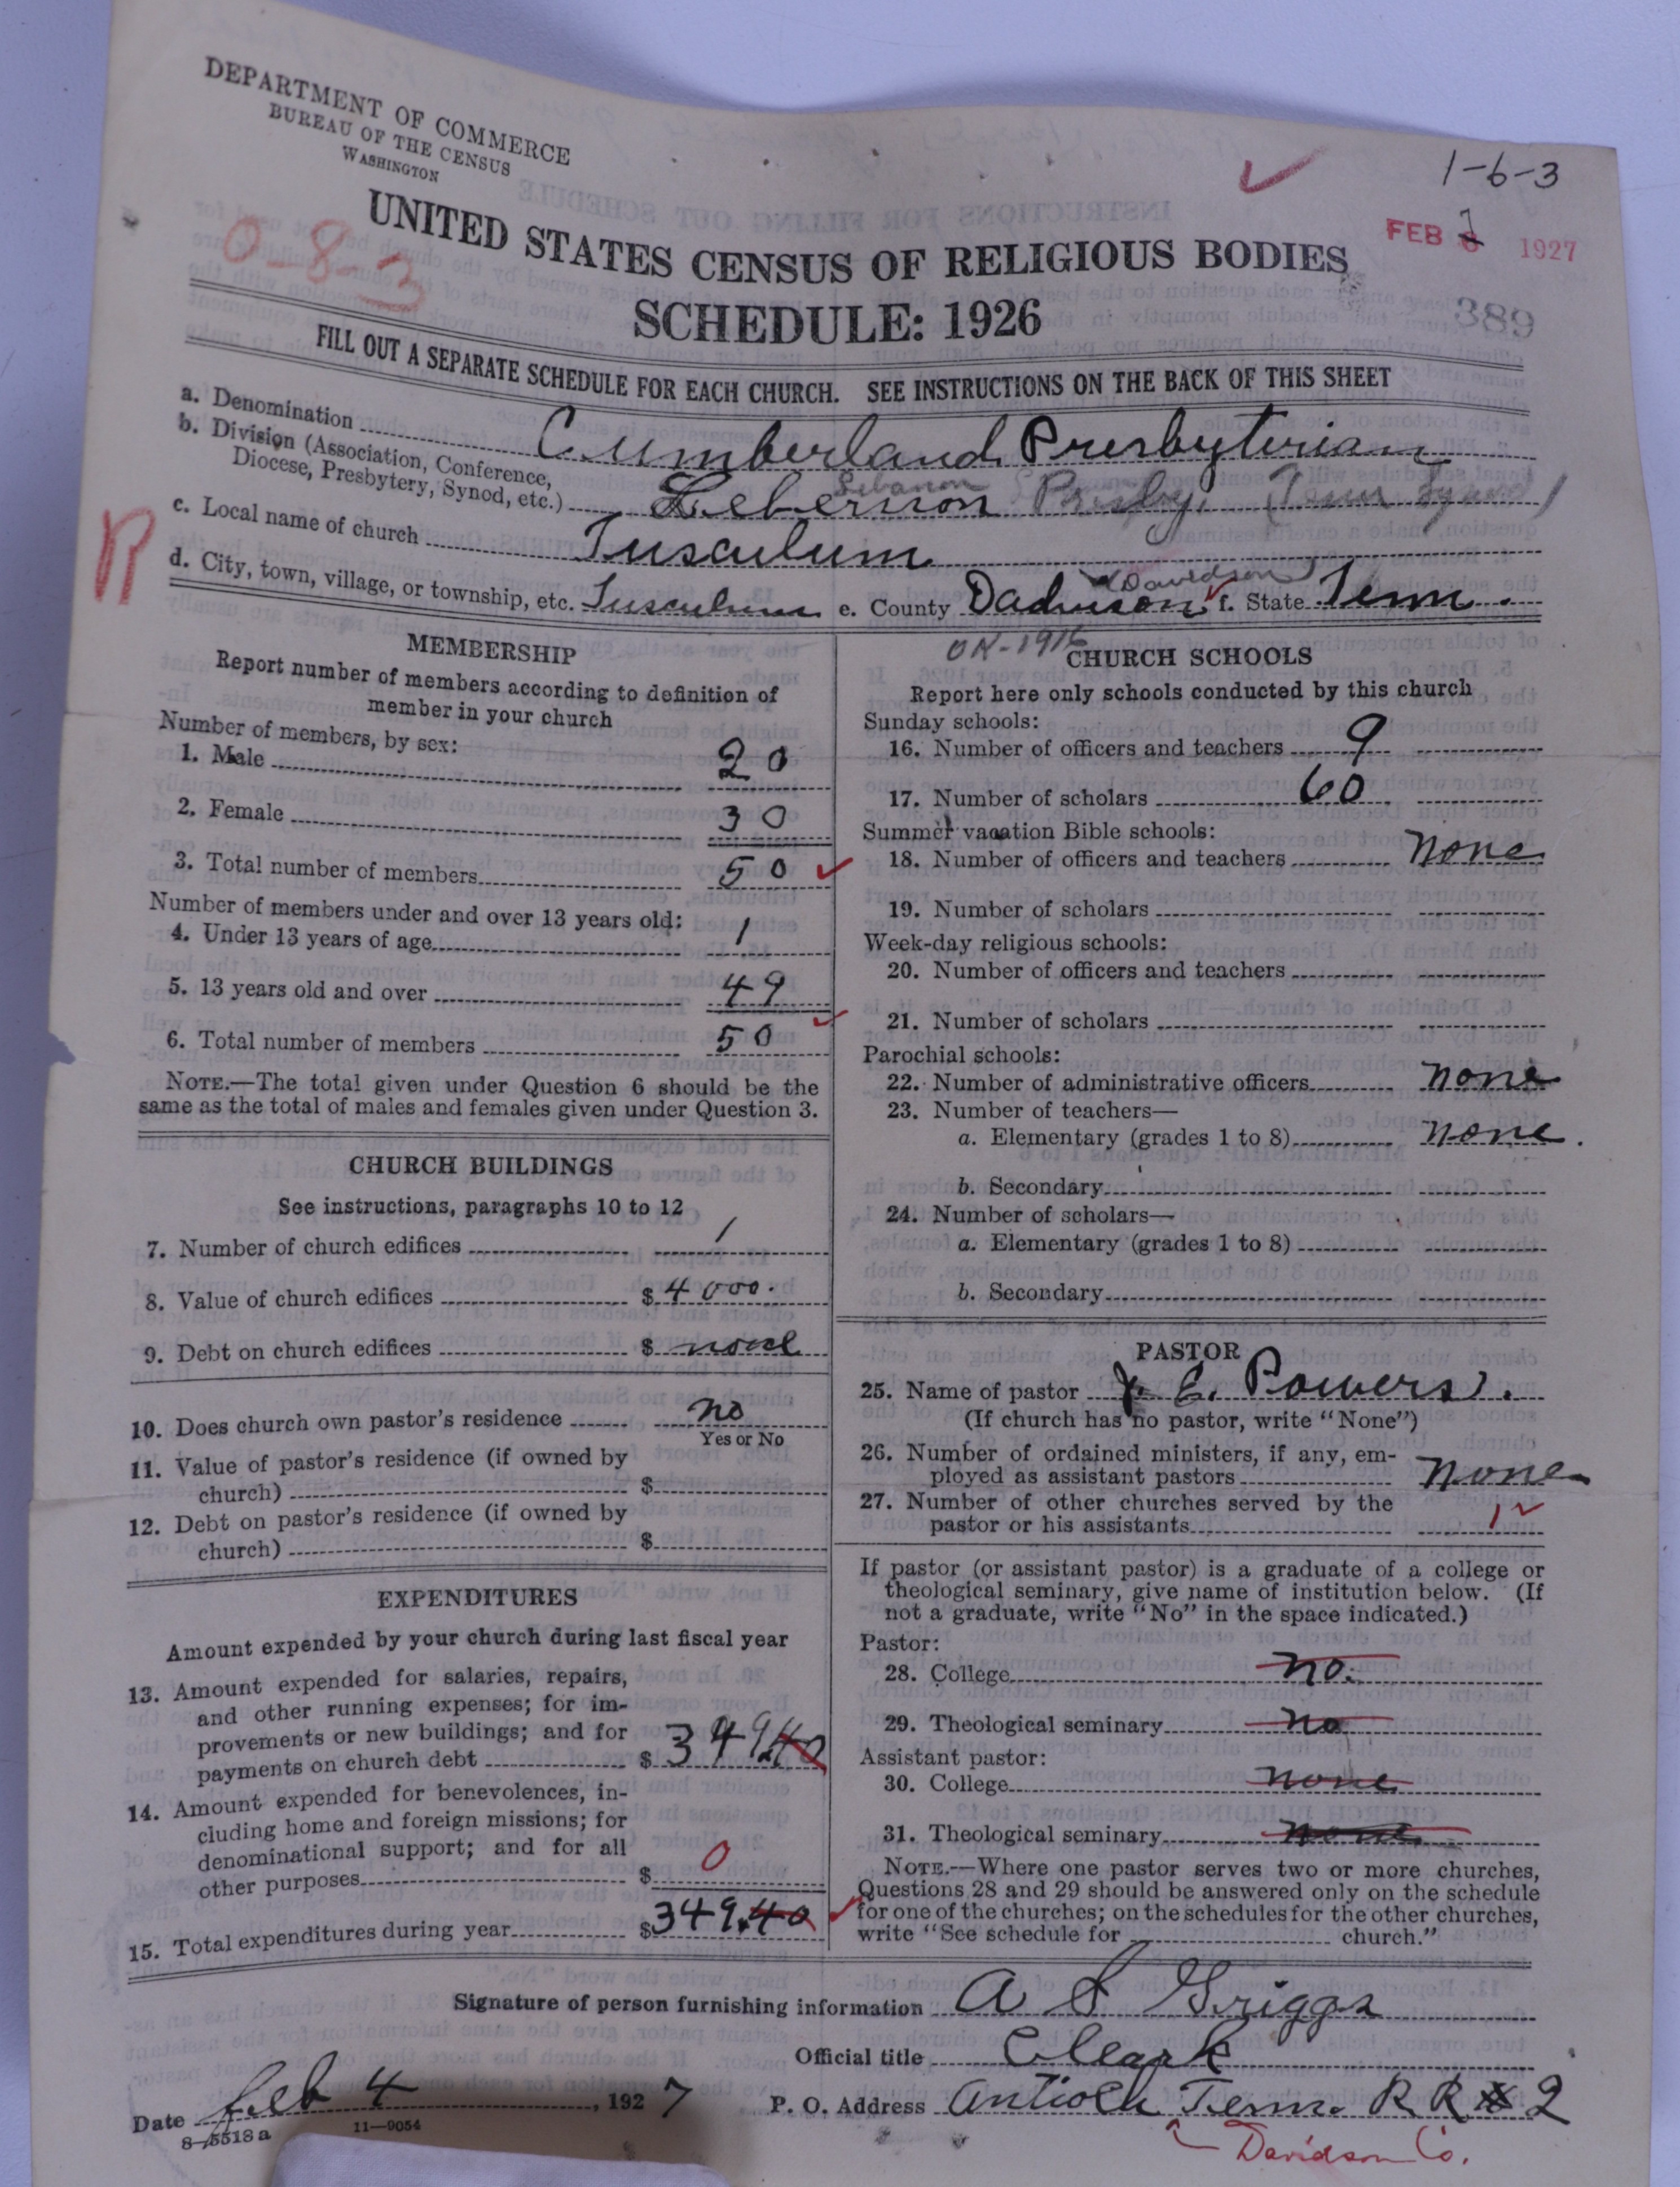 DEPARTMENT OF COMMERCE
BUREAU OF THE CENSUS
WASHINGTON
1-6-3
FEB 7 1927
0-8-3
UNITED STATES CENSUS OF RELIGIOUS BODIES
SCHEDULE: 1926
389
FILL OUT A SEPARATE SCHEDULE FOR EACH CHURCH. SEE INSTRUCTIONS ON THE BACK OF THIS SHEET
a. Denomination Cumberland Presbyterian
b. Division (Association, Conference,
Diocese, Presbytery, Synod, etc.) Lebernon Lebanon Presby. (Tenn Synod)
c. Local name of church Tusculum
R
d. City, town, village, or township, etc. Tusculum e. County Dadvison (Davidson) f. State Tenn.
OK-1916
MEMBERSHIP
Report number of members according to definition of
member in your church
Number of members, by sex:
1. Male 20
2. Female 30
3. Total number of members 50
Number of members under and over 13 years old:
4. Under 13 years of age 1
5. 13 years old and over 49
6. Total number of members 50
NOTE.—The total given under Question 6 should be the
same as the total of males and females given under Question 3.
CHURCH BUILDINGS
See instructions, paragraphs 10 to 12
7. Number of church edifices 1
8. Value of church edifices $ 4000.
9. Debt on church edifices $ none
10. Does church own pastor's residence no
Yes or No
11. Value of pastor's residence (if owned by
church) $
12. Debt on pastor's residence (if owned by
church) $
EXPENDITURES
Amount expended by your church during last fiscal year
13. Amount expended for salaries, repairs,
and other running expenses; for im-
provements or new buildings; and for
payments on church debt $ 349.40
14. Amount expended for benevolences, in-
cluding home and foreign missions; for
denominational support; and for all
other purposes $ 0
15. Total expenditures during year $ 349.40
CHURCH SCHOOLS
Report here only schools conducted by this church
Sunday schools:
16. Number of officers and teachers 9
17. Number of scholars 60
Summer vacation Bible schools:
18. Number of officers and teachers none
19. Number of scholars
Week-day religious schools:
20. Number of officers and teachers
21. Number of scholars
Parochial schools:
22. Number of administrative officers none
23. Number of teachers—
a. Elementary (grades 1 to 8) none.
b. Secondary
24. Number of scholars—
a. Elementary (grades 1 to 8)
b. Secondary
PASTOR
25. Name of pastor J. E. Powers.
(If church has no pastor, write "None")
26. Number of ordained ministers, if any, em-
ployed as assistant pastors none
27. Number of other churches served by the
pastor or his assistants 1
If pastor (or assistant pastor) is a graduate of a college or
theological seminary, give name of institution below. (If
not a graduate, write "No" in the space indicated.)
Pastor:
28. College no.
29. Theological seminary no
Assistant pastor:
30. College none
31. Theological seminary none
NOTE.—Where one pastor serves two or more churches,
Questions 28 and 29 should be answered only on the schedule
for one of the churches; on the schedules for the other churches,
write "See schedule for church."
Signature of person furnishing information A S Griggs
Official title Cleark
Date feb 4, 1927 P. O. Address Antioch Tenn. R R 2
8-5518a 11—9054
Davidson Co.